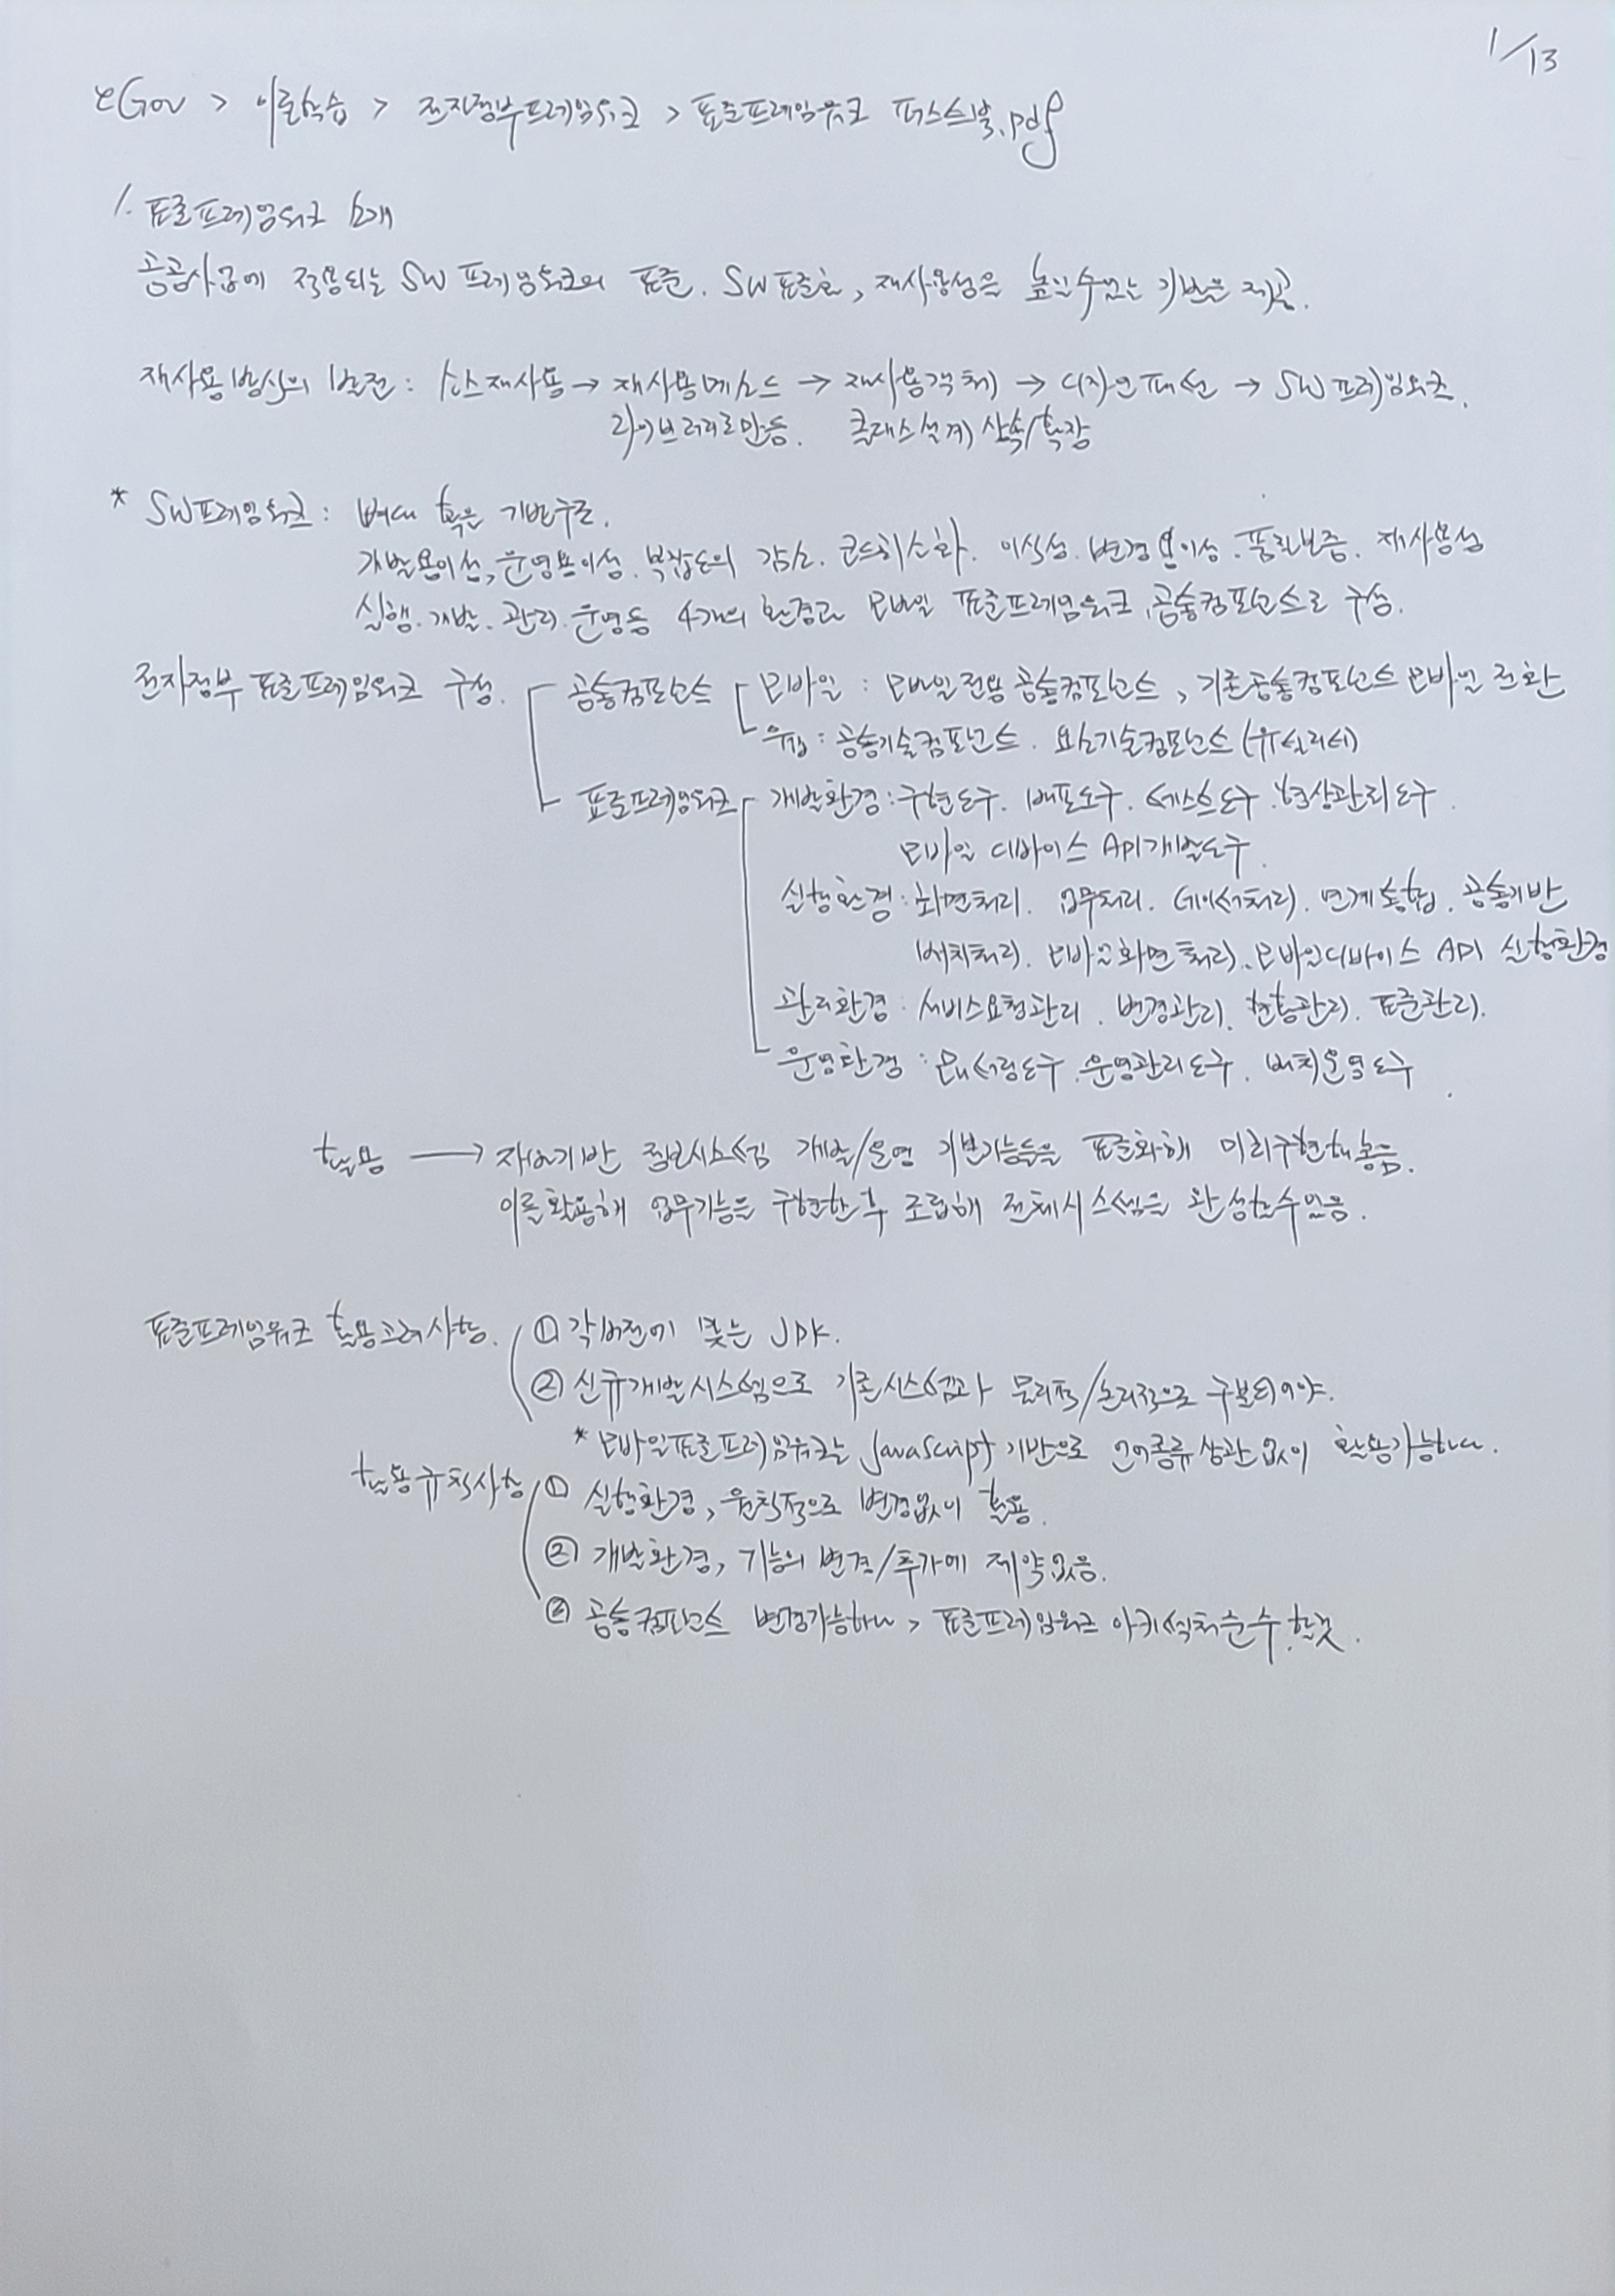 1/13
eGov > 이론학습 > 전자정부프레임워크 > 표준프레임워크 퍼스트북.pdf
1. 표준프레임워크 소개
공공사업에 적용되는 SW 프레임워크의 표준. SW표준화, 재사용성을 높일수있는 기반을 제공.
재사용 방식의 발전 : 소스재사용 → 재사용메소드 → 재사용객체 → 디자인패턴 → SW프레임워크.
라이브러리로만듬. 클래스설계 상속/확장
* SW프레임워크 : 뼈대 혹은 기반구조.
개발용이성, 운영용이성. 복잡도의 감소. 코드최소화. 이식성. 변경용이성. 품질보증. 재사용성
실행. 개발. 관리. 운영등 4개의 환경과 모바일 표준프레임워크, 공통컴포넌스로 구성.
전자정부 표준프레임워크 구성. 공통컴포넌스 모바일 : 모바일전용 공통컴포넌스, 기존공통컴포넌스 모바일 전환
웹 : 공통기술컴포넌스. 요소기술컴포넌스(유틸리티)
표준프레임워크 개발환경 : 구현도구. 배포도구. 테스트도구. 형상관리도구.
모바일 디바이스 API개발도구.
실행환경 : 화면처리. 업무처리. 데이터처리. 연계통합. 공통기반
배치처리. 모바일화면처리. 모바일디바이스 API 실행환경
관리환경 : 서비스요청관리. 변경관리. 현황관리. 표준관리.
운영환경 : 모니터링도구. 운영관리도구. 배치운영도구.
활용 → 자바기반 정보시스템 개발/운영 기본기능들을 표준화해 미리구현해놓음.
이를 활용해 업무기능을 구현한 후 조립해 전체시스템을 완성할수있음.
표준프레임워크 활용고려사항. ① 각버전에 맞는 JDK.
② 신규개발시스템으로 기존시스템과 물리적/논리적으로 구분되어야.
* 모바일표준프레임워크는 Javascript 기반으로 언어종류 상관없이 활용가능하나.
활용규칙사항 ① 실행환경, 원칙적으로 변경없이 활용.
② 개발환경, 기능의 변경/추가에 제약없음.
② 공통컴포넌스 변경가능하나, 표준프레임워크 아키텍처준수.할것.